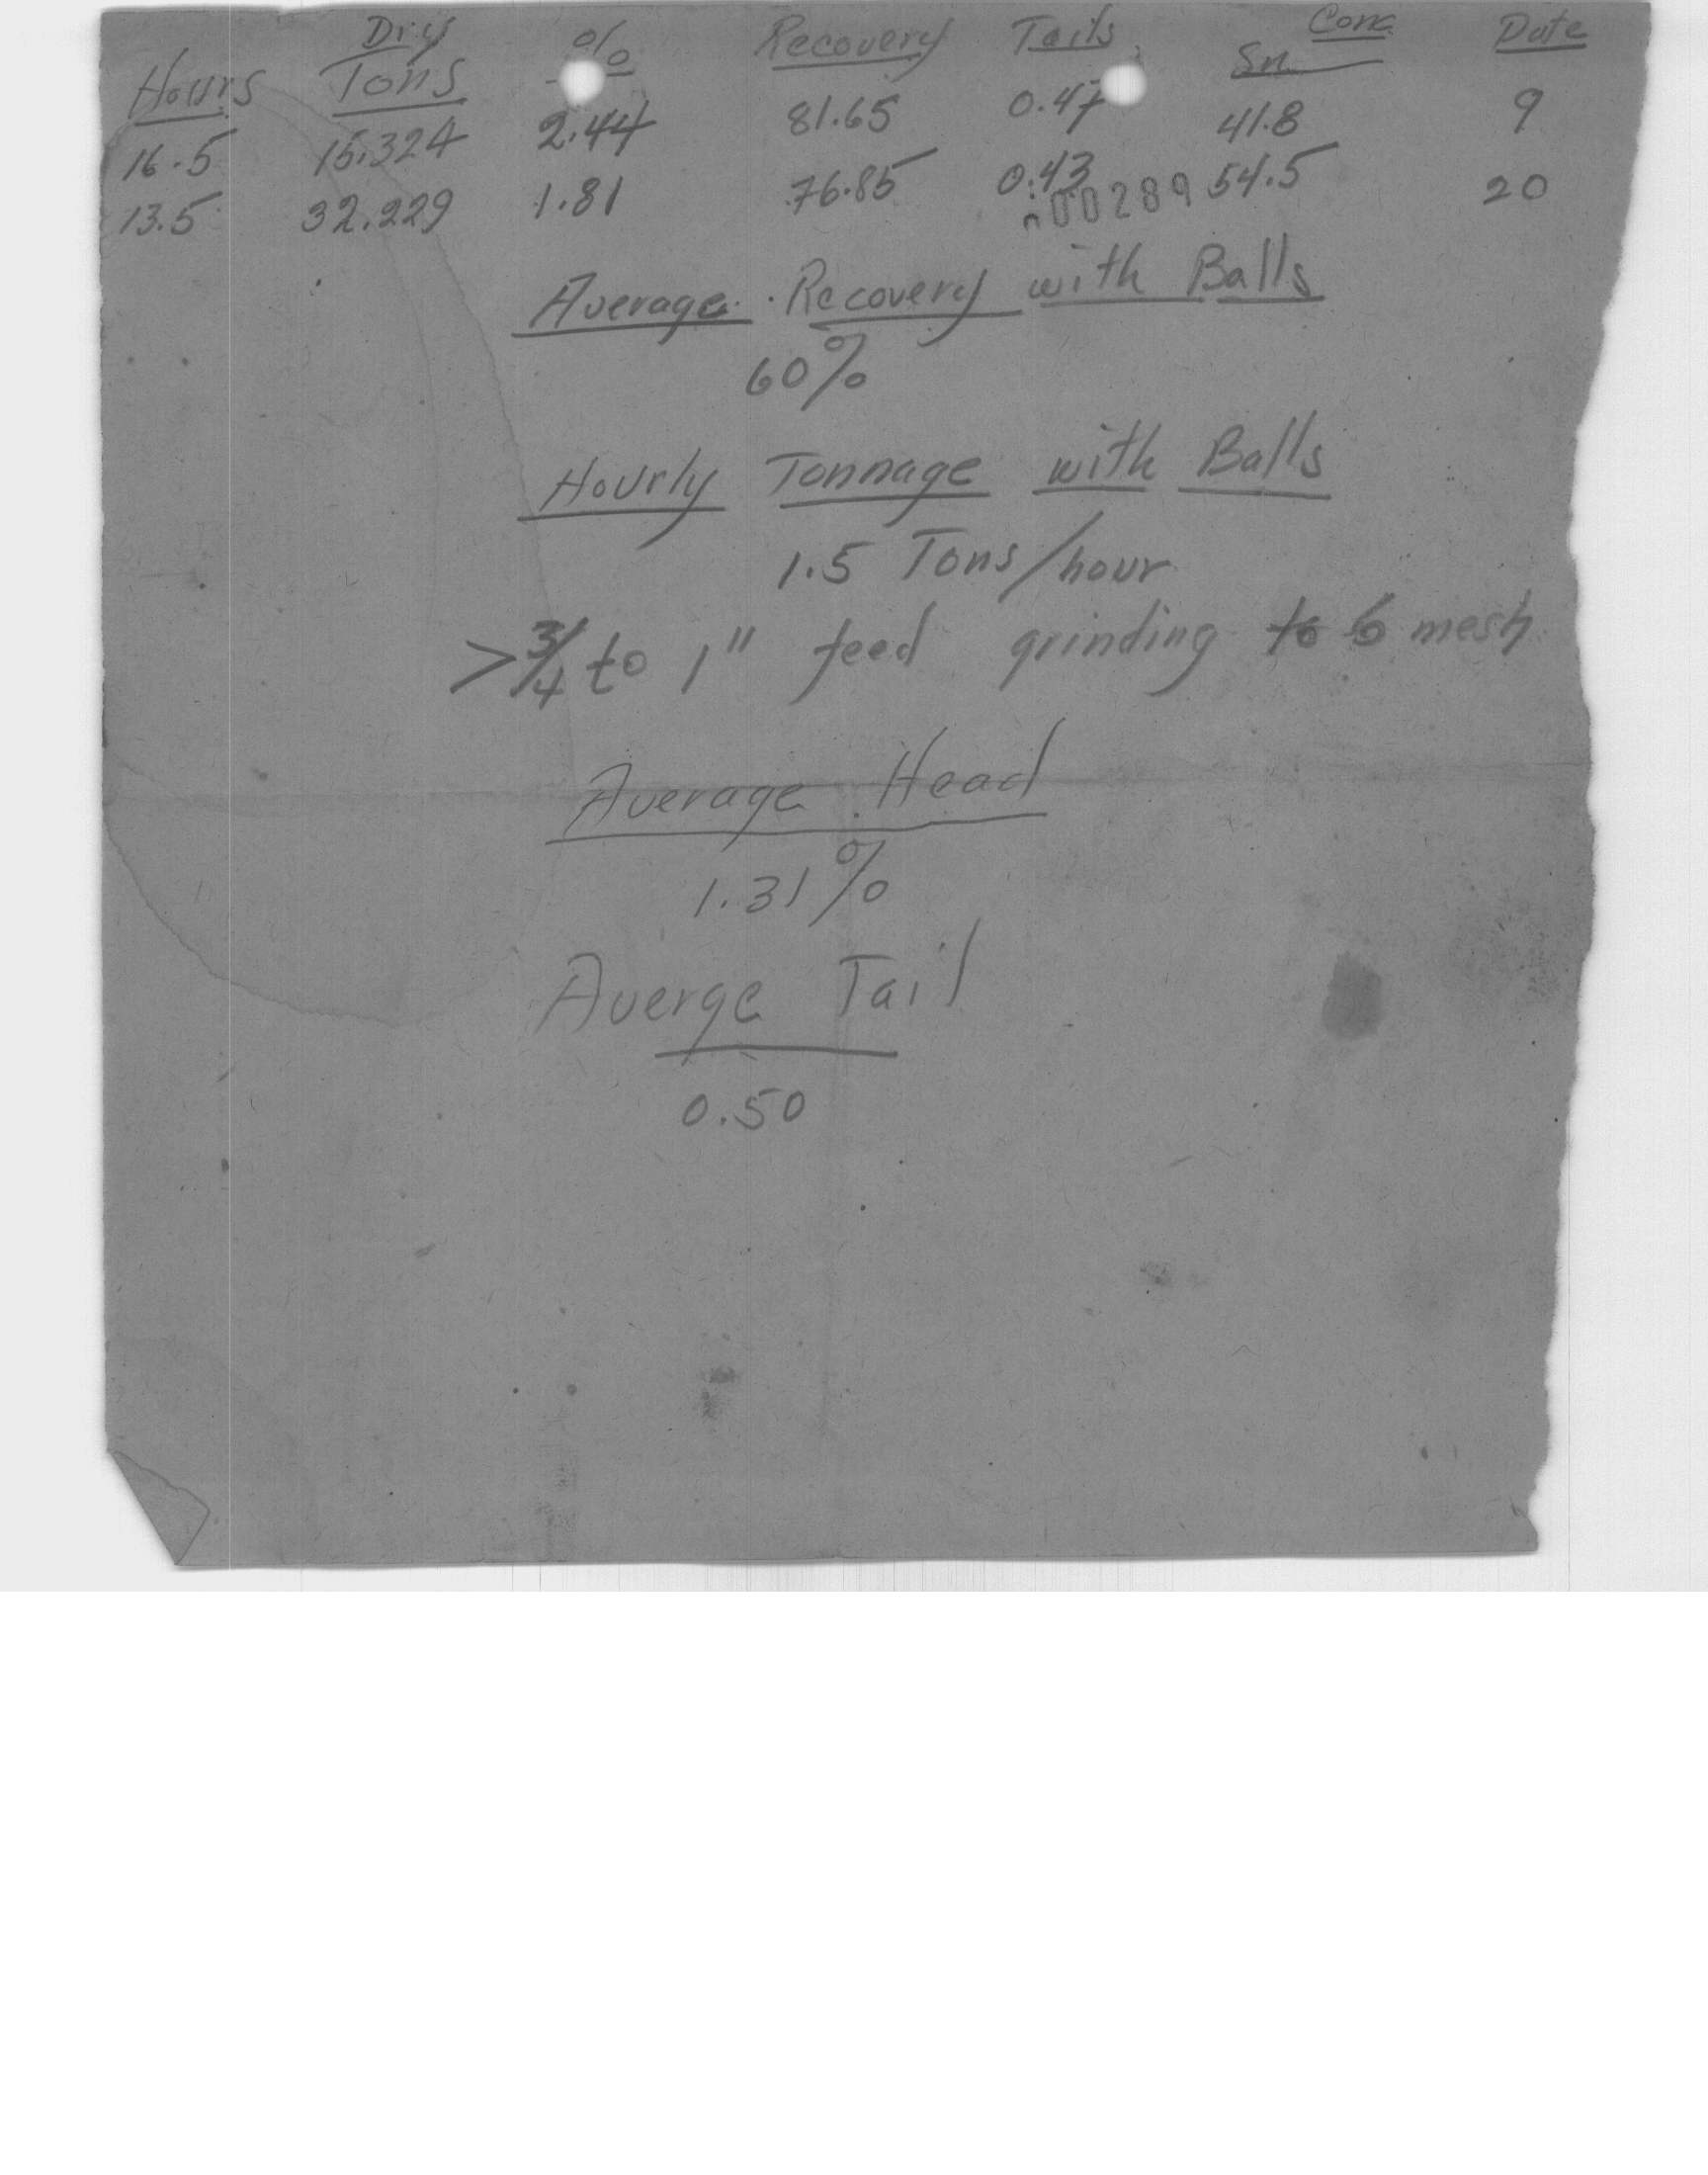 Hours Dry Tons % Recovery Tails Sn Conc Date
16.5 15.324 2.44 81.65 0.47 41.8 9
13.5 32.229 1.81 76.85 0.43 54.5 20
000289
Average Recovery with Balls
60%
Hourly Tonnage with Balls
1.5 Tons/hour
>3/4 to 1" feed grinding to 6 mesh
Average Head
1.31%
Averge Tail
0.50